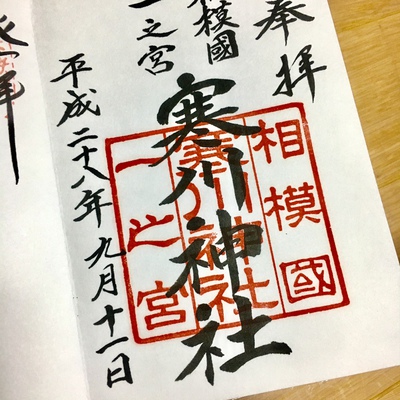 奉拝
相模國
一之宮
寒川神社
平成二十八年九月十一日
相模國
寒川神社
一之宮
拝